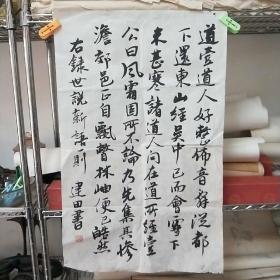 道壹道人好整飾音辞從都
下還東山經吳中已而會雪下
未甚寒諸道人問在道所經壹
公曰風霜固所不論乃先集其慘
澹郊邑正自飄瞥林岫便已皓然
右録世說新語一則 建田書